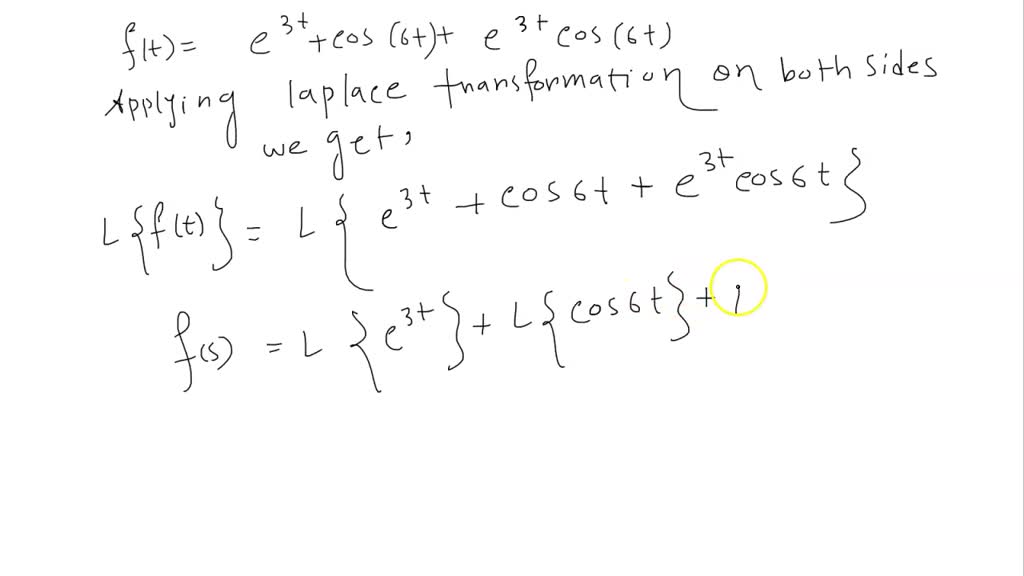 f(t) = e^{3t} + cos(6t) + e^{3t} cos(6t)
Applying laplace transformation on both sides
we get,
L{f(t)} = L{e^{3t} + cos6t + e^{3t} cos6t}
f(s) = L{e^{3t}} + L{cos6t} +